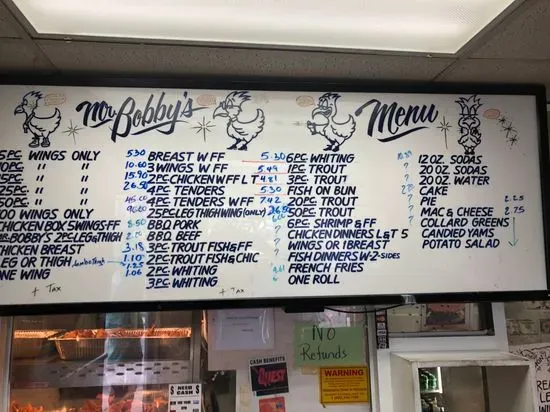 Mr. Bobby's
Menu
5PC WINGS ONLY 5.30
10PC " " 10.60
15PC " " 15.90
25PC " " 26.50
50PC " "
100 WINGS ONLY
CHICKEN BOX 5WINGS-FF 8.50
MR. BOBBY'S 2PC LEG & THIGH
CHICKEN BREAST 3.18
LEG OR THIGH 1.10
ONE WING 1.06
+ TAX
BREAST W FF 5.30
3 WINGS W FF 5.49
2PC CHICKEN W FF L T 4.81
4PC TENDERS 5.30
4PC TENDERS W FF 7.42
25PC LEG THIGH WING (ONLY)
BBQ PORK ?
BBQ BEEF ?
3PC TROUT FISH & FF
2PC TROUT FISH & CHIC
2PC WHITING
3PC WHITING
+ TAX
6PC WHITING
1PC TROUT ?
3PC TROUT ?
FISH ON BUN
20PC TROUT ?
50PC TROUT ?
6PC SHRIMP & FF
CHICKEN DINNERS L&T 5
WINGS OR 1 BREAST
FISH DINNERS W-2-SIDES
FRENCH FRIES
ONE ROLL
12 OZ. SODAS
20 OZ. SODAS
20 OZ. WATER
CAKE
PIE 2.25
MAC & CHEESE 2.75
COLLARD GREENS
CANDIED YAMS
POTATO SALAD
NO
Refunds
CASH BENEFITS
QUEST
WARNING
NEED CASH